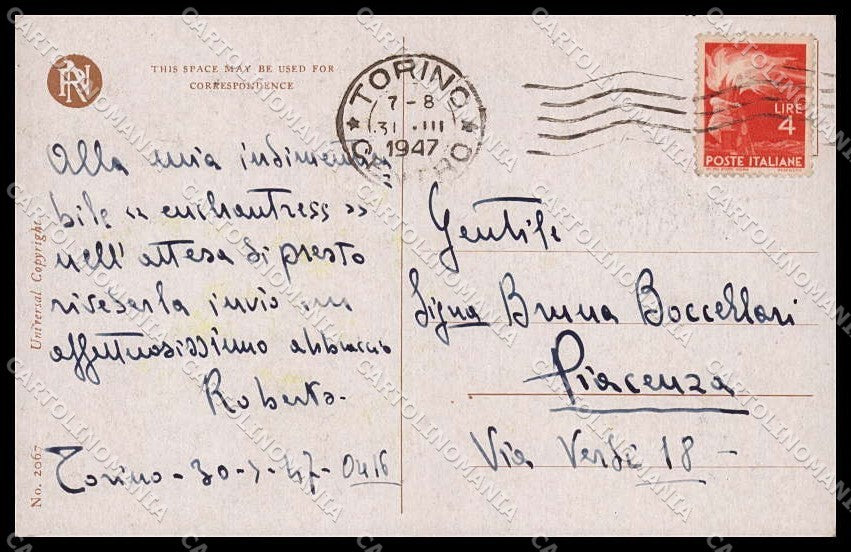 THIS SPACE MAY BE USED FOR
CORRESPONDENCE
TORINO
7-8
31.III
1947
CENTRO
LIRE
4
POSTE ITALIANE
Alla mia indimentica
bile « enchantress »
nell'attesa di presto
rivederla invio un
affettuosissimo abbraccio
Roberto.
Torino - 30-
Gentile
Sigṉa Bruna Boccellari
Piacenza
Via Verdi 18 -
Universal Copyright
No. 2067
CARTOLINOMANIA